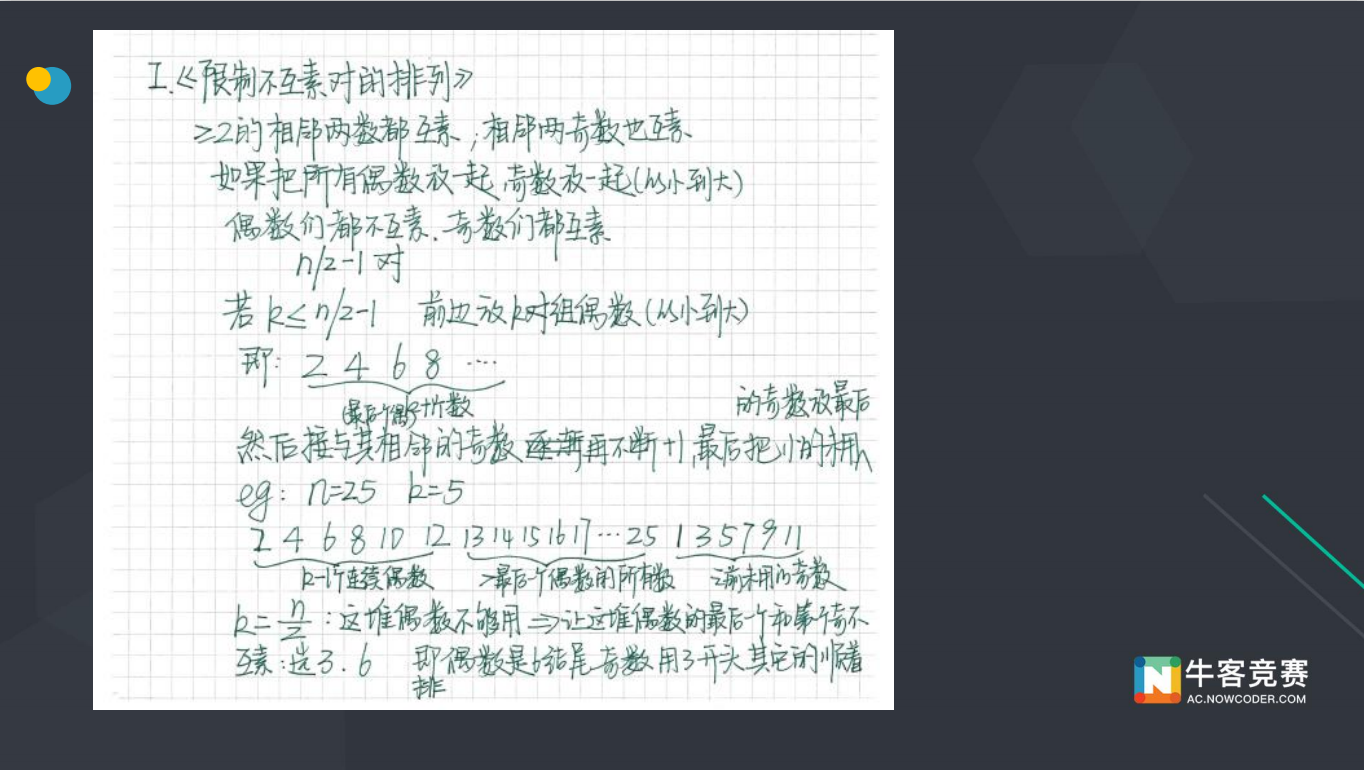 I.《限制不互素对的排列》
≥2的相邻两数都互素,相邻两奇数也互素
如果把所有偶数放一起,奇数放一起(从小到大)
偶数们都不互素.奇数们都互素
n/2-1 对
若 k≤n/2-1 前边放k对组偶数(从小到大)
即: 2 4 6 8 ...
的奇数放最后
然后接与其相邻的奇数 再不断+1,最后把小的未用
eg: n=25 k=5
2 4 6 8 10 12 13 14 15 16 17 ... 25 1 3 5 7 9 11
k-1个连续偶数 >最后一个偶数的所有数 之前未用的奇数
k=n/2 :这堆偶数不够用⇒让这堆偶数的最后一个和第一个奇不
互素:选3.6 即偶数是6结尾,奇数用3开头,其它的顺着
排
牛客竞赛
AC.NOWCODER.COM